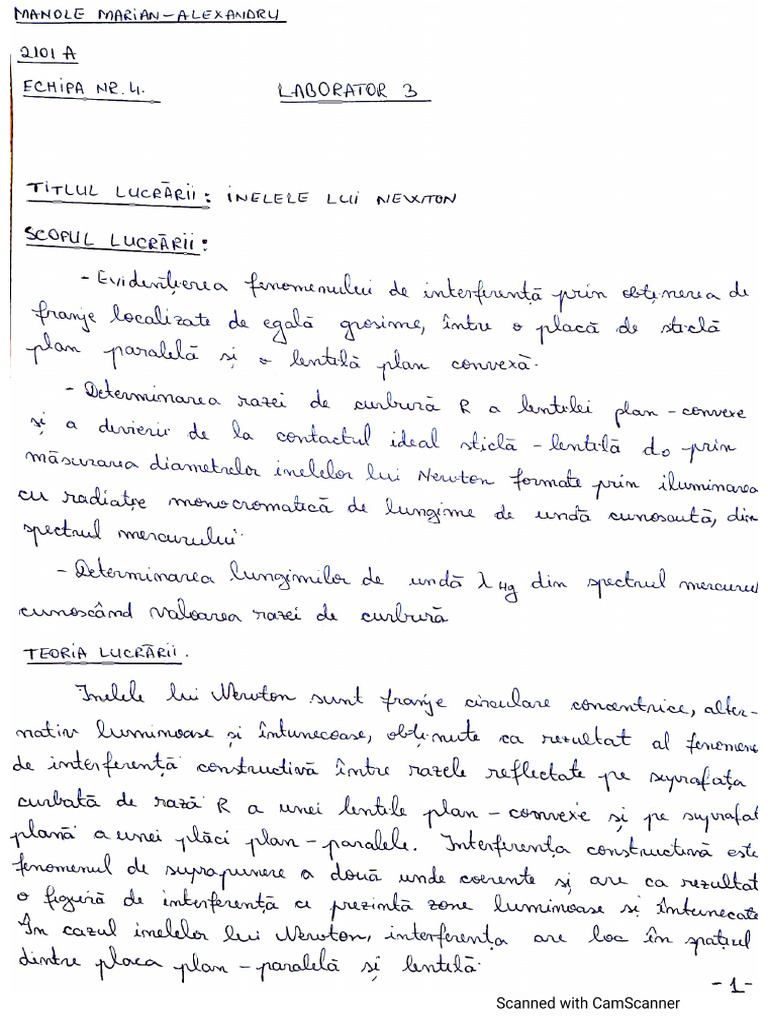 MANOLE MARIAN-ALEXANDRU
2101 A
ECHIPA NR. 4. LABORATOR 3
TITLUL LUCRĂRII: INELELE LUI NEWTON
SCOPUL LUCRĂRII:
- Evidențierea fenomenului de interferență prin obținerea de
franje localizate de egală grosime, între o placă de sticlă
plan paralelă și o lentilă plan convexă.
- Determinarea razei de curbură R a lentilei plan-convexe
și a devierii de la contactul ideal sticlă-lentilă do prin
măsurarea diametrelor inelelor lui Newton formate prin iluminarea
cu radiație monocromatică de lungime de undă cunoscută, din
spectrul mercurului.
- Determinarea lungimilor de undă λ Hg din spectrul mercurul
cunoscând valoarea razei de curbură
TEORIA LUCRĂRII.
Inelele lui Newton sunt franje circulare concentrice, alter-
nativ luminoase și întunecoase, obținute ca rezultat al fenomene
de interferență constructivă între razele reflectate pe suprafața
curbată de rază R a unei lentile plan-convexe și pe suprafaț
plană a unei plăci plan-paralele. Interferența constructivă este
fenomenul de suprapunere a două unde coerente și are ca rezultat
o figură de interferență ce prezintă zone luminoase și întunecate
În cazul inelelor lui Newton, interferența are loc în spațiul
dintre placa plan-paralelă și lentilă.
-1-
Scanned with CamScanner